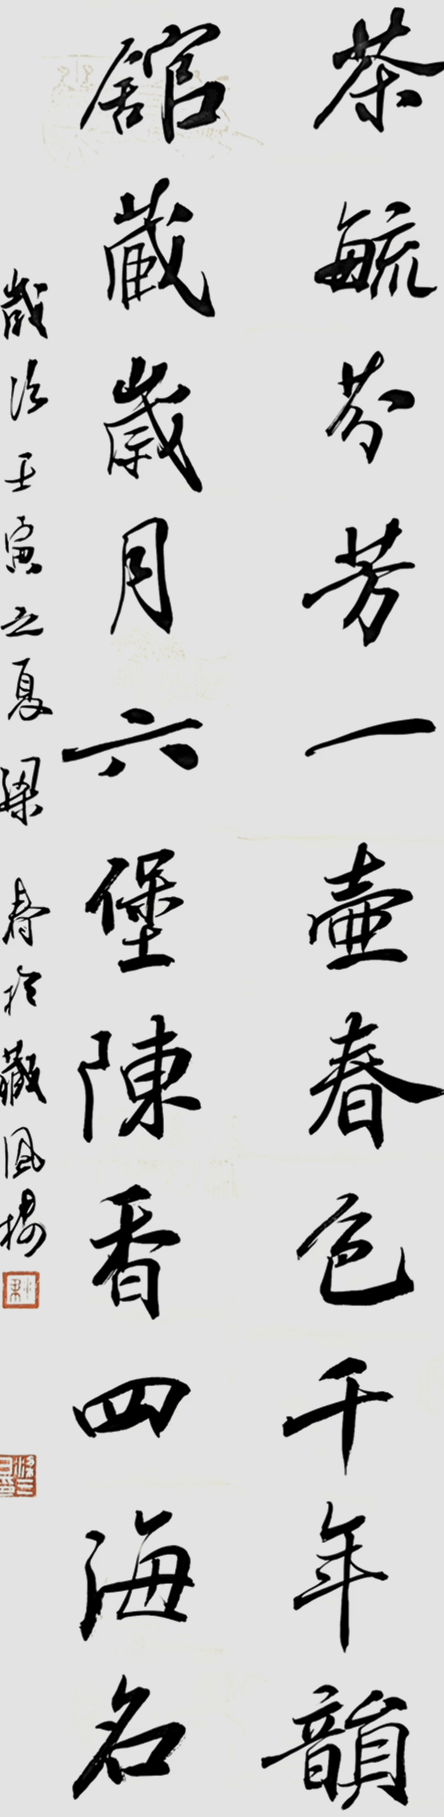 茶毓芬芳一壺春色千年韻
舘藏歲月六堡陳香四海名
歲次壬寅之夏梁春於藏風樓